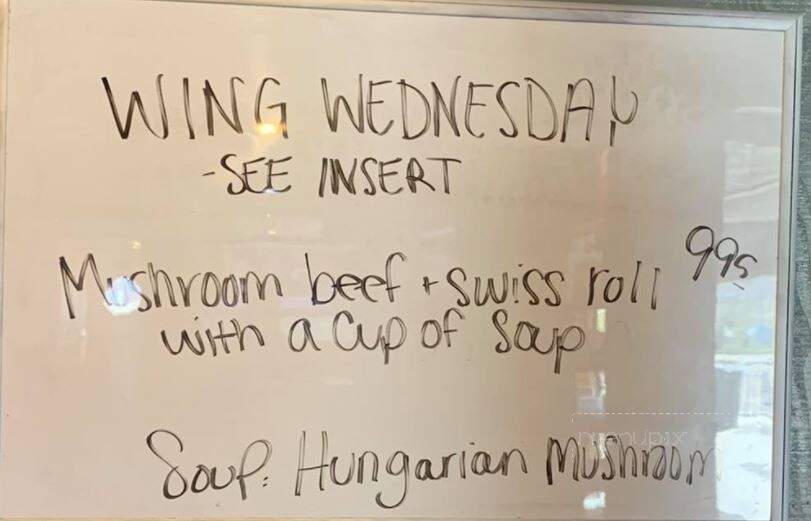 WING WEDNESDAY
-SEE INSERT
Mushroom beef + swiss roll 995
with a cup of Soup
Soup: Hungarian Mushroom
menupix